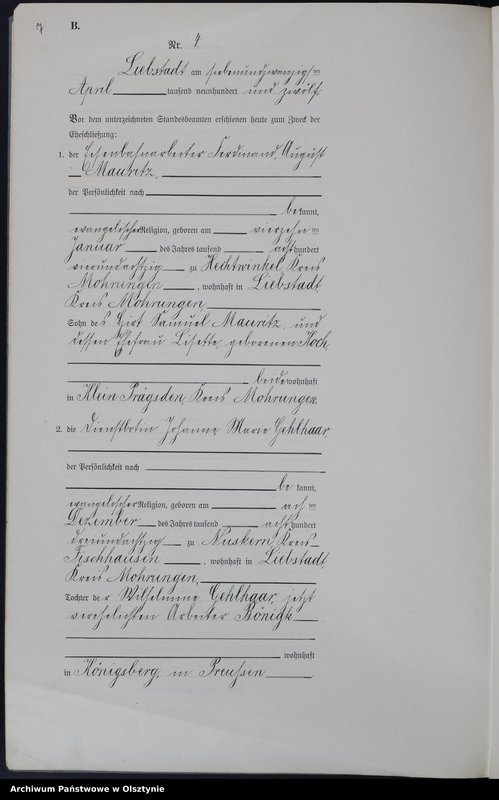 7
B.
Nr. 9.
Liebstadt am siebenundzwanzigsten
April tausend neunhundert und zwölf.
Vor dem unterzeichneten Standesbeamten erschienen heute zum Zweck der
Eheschließung:
1. der Eisenbahnarbeiter Ferdinand August
Mauritz,
der Persönlichkeit nach
bekannt,
evangelischer Religion, geboren am vierzehn ten
Januar des Jahres tausend acht hundert
vierundachtzig zu Hechtwinkel, Kreis
Mohrungen, wohnhaft in Liebstadt,
Kreis Mohrungen
Sohn des Hirt Samuel Mauritz und
dessen Ehefrau Lisette, geborenen Koch,
beide wohnhaft
in Klein Prägsden, Kreis Mohrungen.
2. die Dienstbotin Johanne Marie Gehlhaar,
der Persönlichkeit nach
be kannt,
evangelischer Religion, geboren am ach ten
Dezember des Jahres tausend acht hundert
dreiundachtzig zu Nuskern, Kreis
Fischhausen, wohnhaft in Liebstadt,
Kreis Mohrungen,
Tochter der Wilhelmine Gehlhaar, jetzt
verehelichten Arbeiter
wohnhaft
in Königsberg, in Preußen.
Archiwum Państwowe w Olsztynie